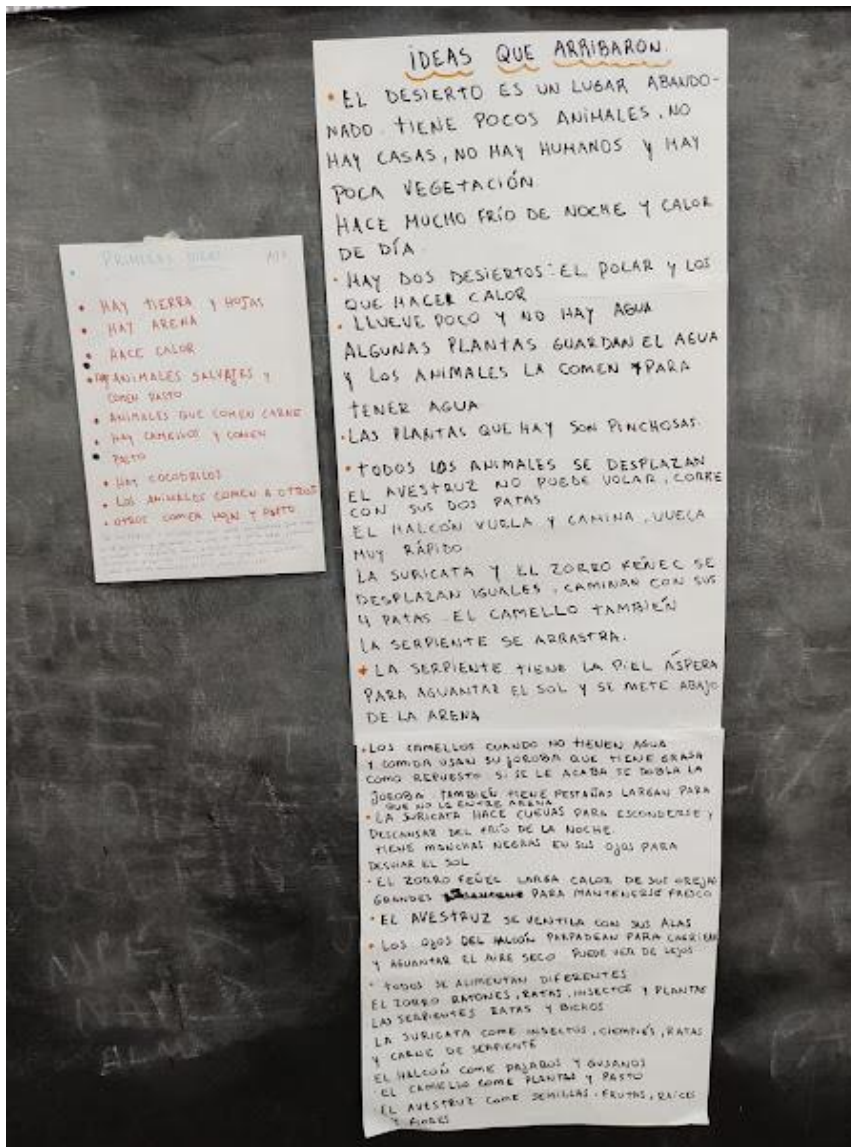 PRIMERAS IDEAS
• HAY TIERRA Y HOJAS
• HAY ARENA
• HACE CALOR
• HAY ANIMALES SALVAJES Y
COMEN PASTO
• ANIMALES QUE COMEN CARNE
• HAY CAMELLOS Y COMEN
PASTO
• HAY COCODRILOS
• LOS ANIMALES COMEN A OTROS
• OTROS COMEN HOJA Y PASTO
IDEAS QUE ARRIBARON
• EL DESIERTO ES UN LUGAR ABANDO-
NADO. TIENE POCOS ANIMALES, NO
HAY CASAS, NO HAY HUMANOS Y HAY
POCA VEGETACIÓN
HACE MUCHO FRÍO DE NOCHE Y CALOR
DE DÍA.
• HAY DOS DESIERTOS: EL POLAR Y LOS
QUE HACER CALOR
• LLUEVE POCO Y NO HAY AGUA
ALGUNAS PLANTAS GUARDAN EL AGUA
Y LOS ANIMALES LA COMEN PARA
TENER AGUA
• LAS PLANTAS QUE HAY SON PINCHOSAS.
• TODOS LOS ANIMALES SE DESPLAZAN
EL AVESTRUZ NO PUEDE VOLAR, CORRE
CON SUS DOS PATAS
EL HALCÓN VUELA Y CAMINA, VUELA
MUY RÁPIDO
LA SURICATA Y EL ZORRO FEÑEC SE
DESPLAZAN IGUALES, CAMINAN CON SUS
4 PATAS. EL CAMELLO TAMBIÉN
LA SERPIENTE SE ARRASTRA.
• LA SERPIENTE TIENE LA PIEL ÁSPERA
PARA AGUANTAR EL SOL Y SE METE ABAJO
DE LA ARENA
• LOS CAMELLOS CUANDO NO TIENEN AGUA
Y COMIDA USAN SU JOROBA QUE TIENE GRASA
COMO REPUESTO SI SE LE ACABA SE DOBLA LA
JOROBA. TAMBIÉN TIENE PESTAÑAS LARGAS PARA
QUE NO LE ENTRE ARENA
• LA SURICATA HACE CUEVAS PARA ESCONDERSE Y
DESCANSAR DEL FRÍO DE LA NOCHE.
TIENE MANCHAS NEGRAS EN SUS OJOS PARA
DESVIAR EL SOL
• EL ZORRO FEÑEC LARGA CALOR DE SUS OREJAS
GRANDES PARA MANTENERSE FRESCO
• EL AVESTRUZ SE VENTILA CON SUS ALAS
• LOS OJOS DEL HALCÓN PARPADEAN PARA
Y AGUANTAR EL AIRE SECO PUEDE VER DE LEJOS
• TODOS SE ALIMENTAN DIFERENTES
EL ZORRO RATONES, RATAS, INSECTOS Y PLANTAS
LAS SERPIENTES RATAS Y BICHOS
LA SURICATA COME INSECTOS, CIEMPIÉS, RATAS
Y CARNE DE SERPIENTE
EL HALCÓN COME PAJAROS Y GUSANOS
EL CAMELLO COME PLANTAS Y PASTO
EL AVESTRUZ COME SEMILLAS, FRUTAS, RAÍCES
Y FLORES